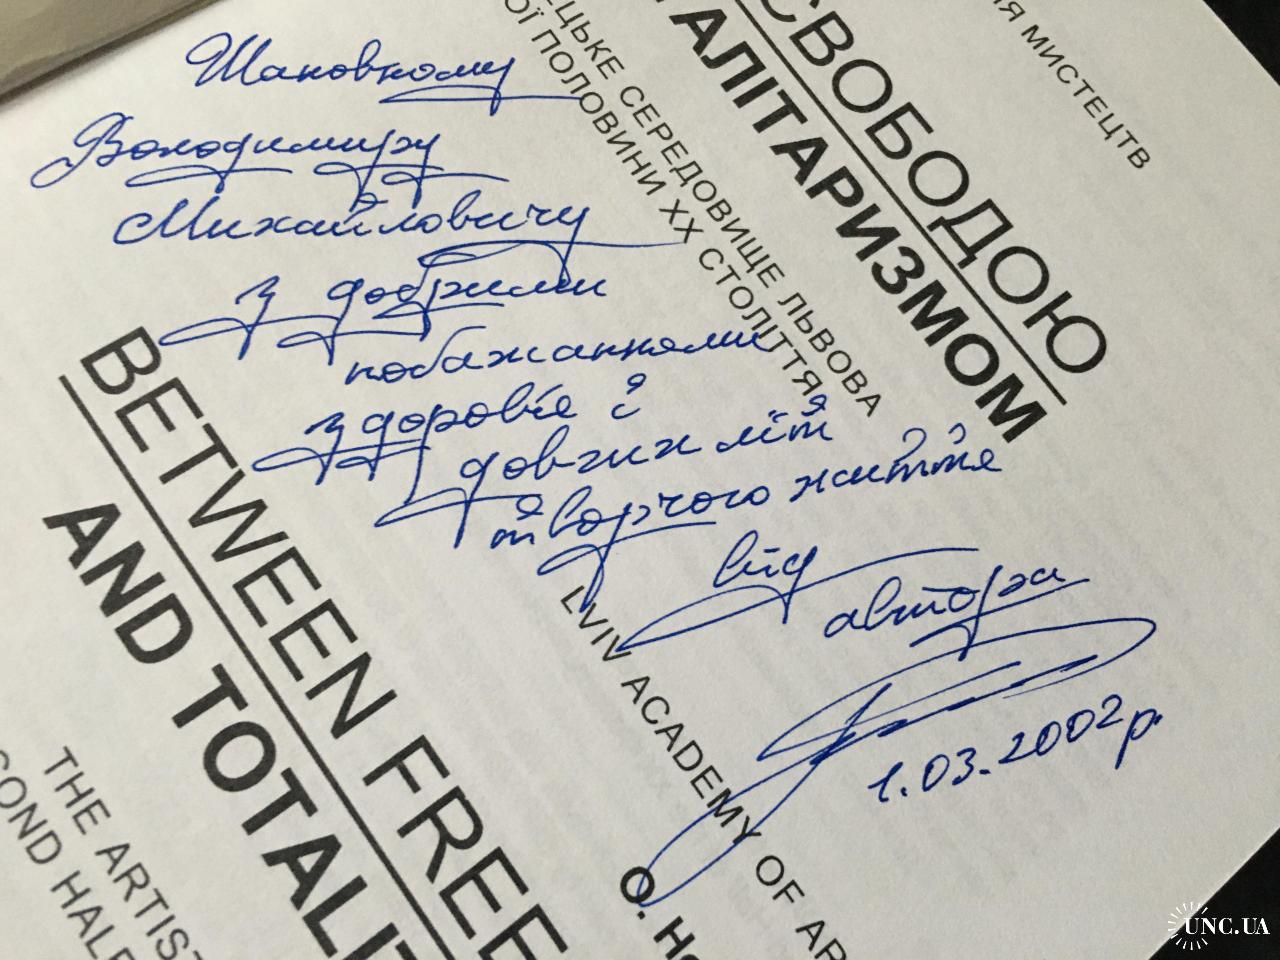 Шановному
Володимиру
Михайловичу
з добрими
побажаннями
здоров'я і
довгих літ
творчого життя
від
автора
1.03.2002р.
ИЯ МИСТЕЦТВ
СВОБОДОЮ
АЛІТАРИЗМОМ
ЕЦЬКЕ СЕРЕДОВИЩЕ ЛЬВОВА
ОЇ ПОЛОВИНИ XX СТОЛІТТЯ
LVIV ACADEMY OF AR
O. Но
BETWEEN FREE
AND TOTALIT
THE ARTIST
COND HALF
UNC.UA